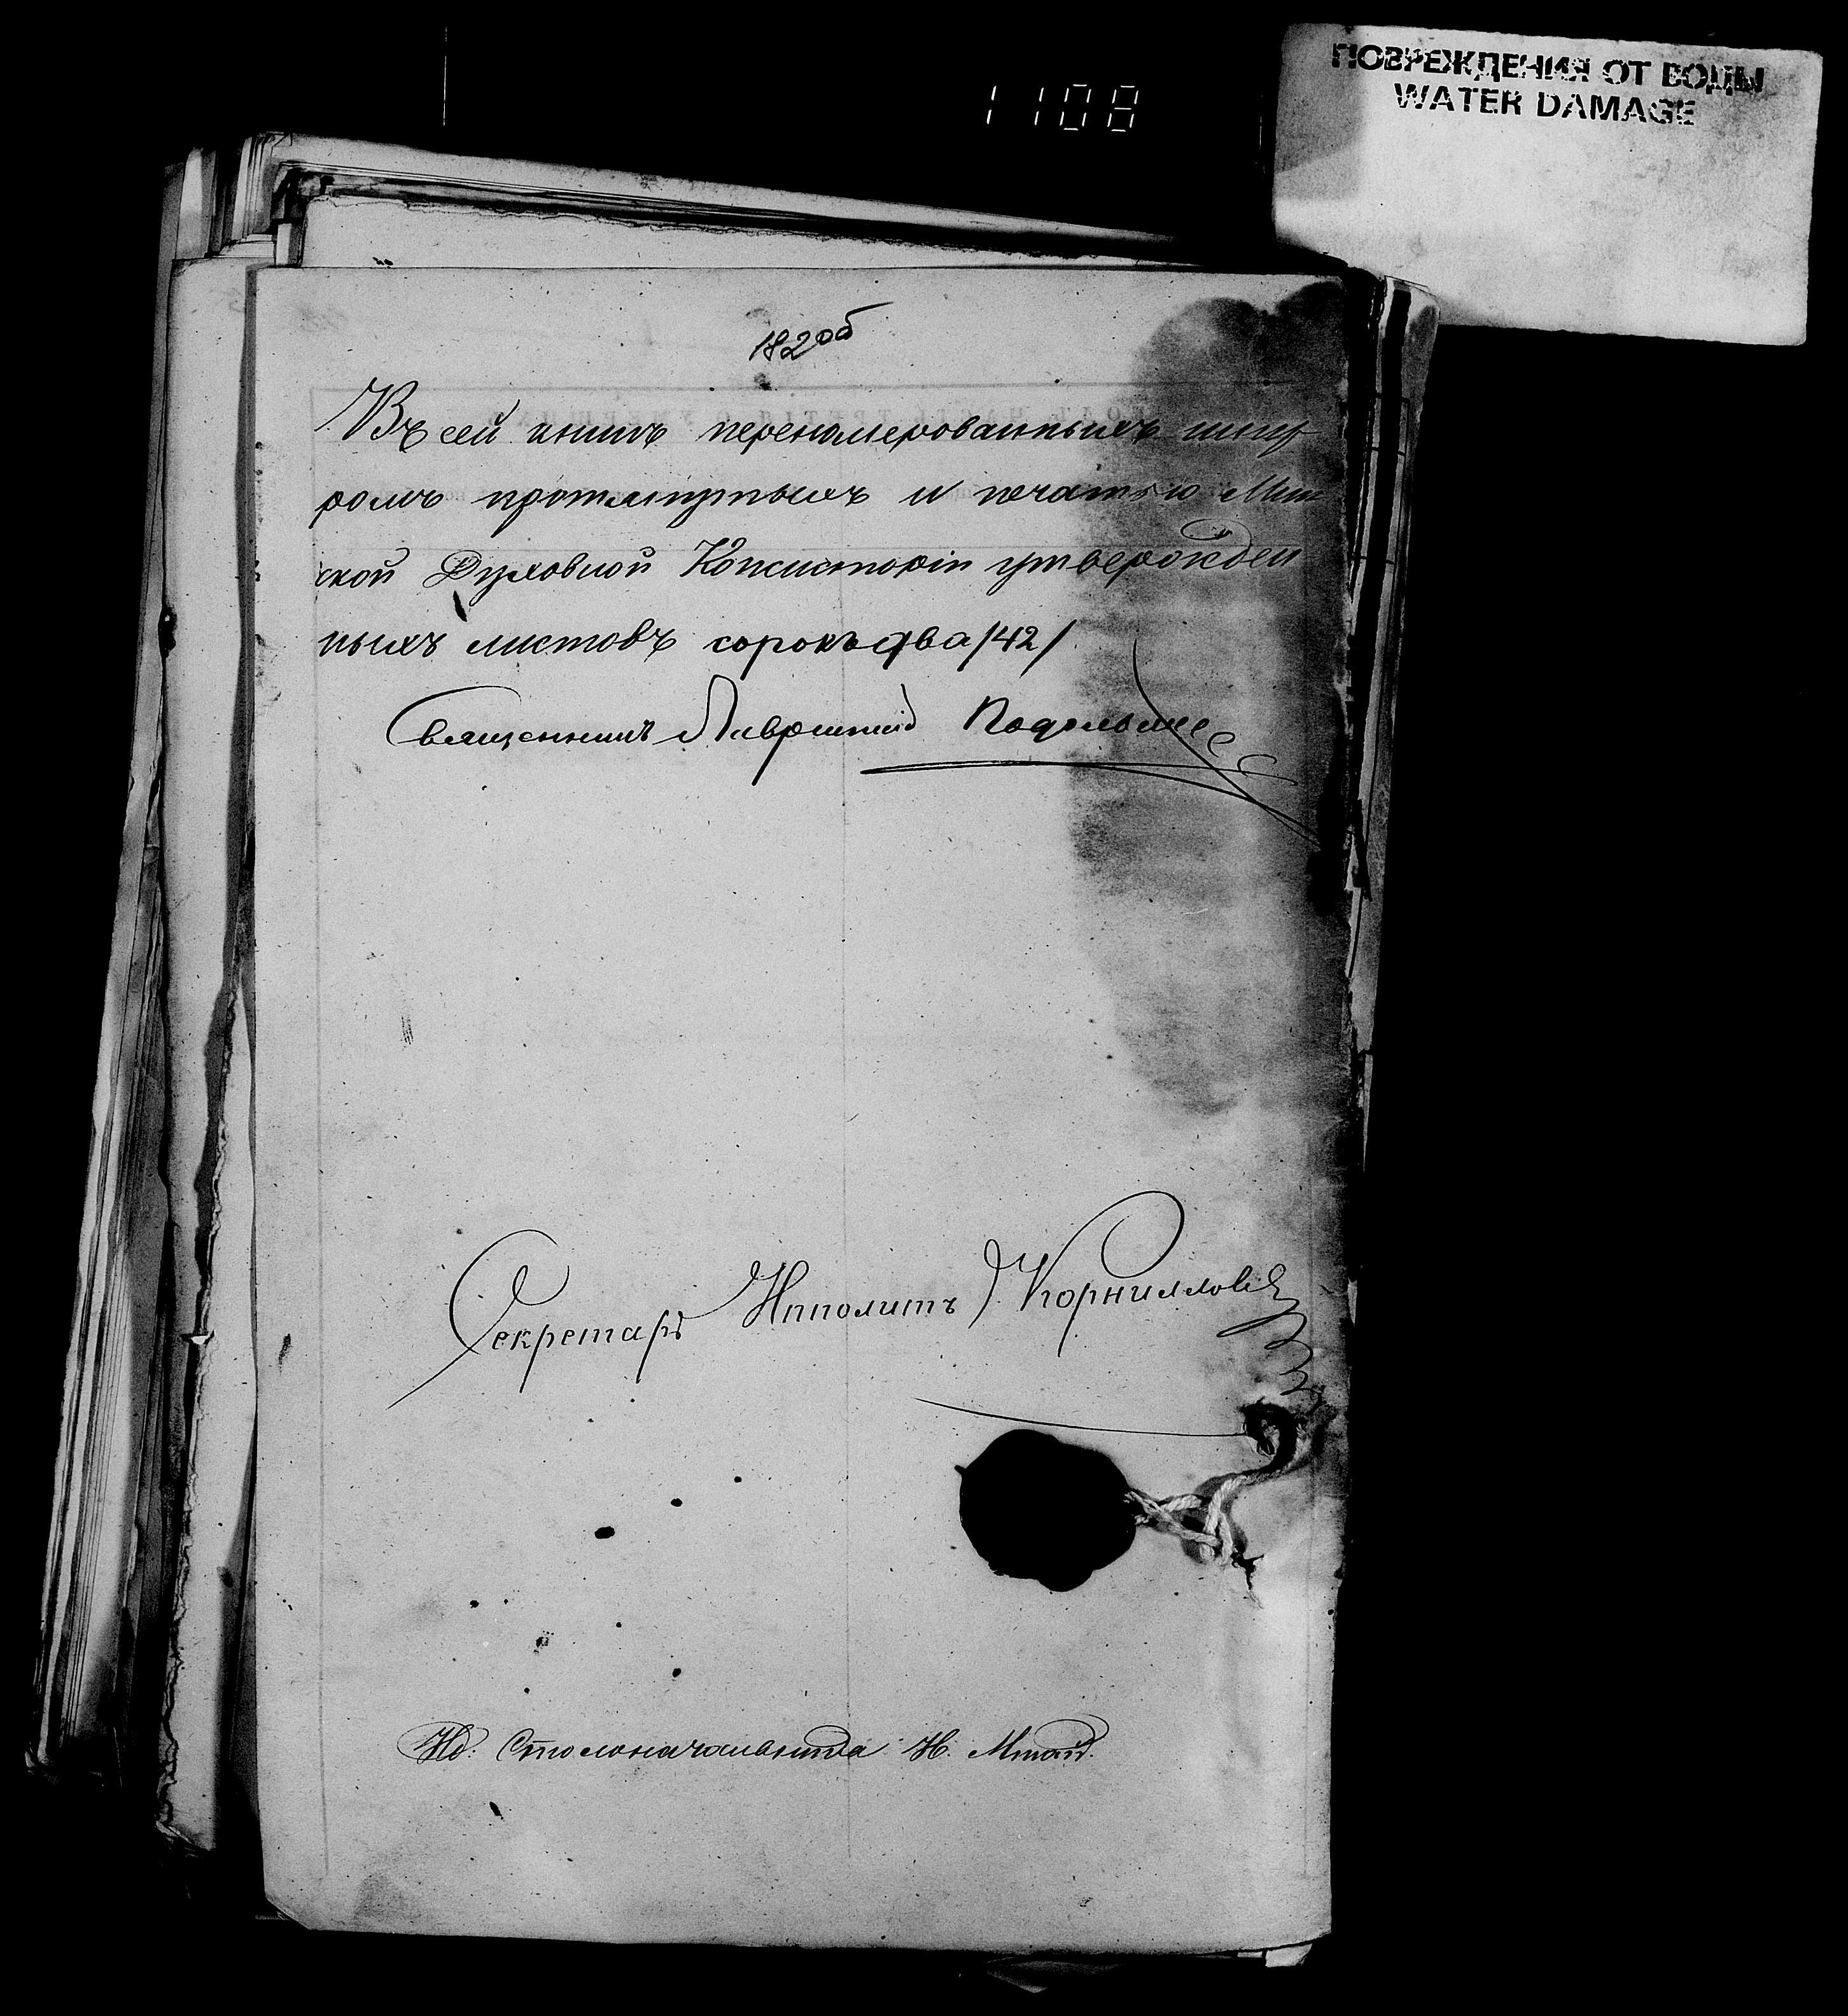 1108
ПОВРЕЖДЕНИЯ ОТ ВОДЫ
WATER DAMAGE
182 об
Въ сей книгѣ переномерованныхъ шну
ромъ протянутыхъ и печатью Мин
ской Духовной Консисторіи утвержден
ныхъ листовъ сорокъ два /42/
Священникъ Лаврентій
Секретарь Ипполитъ Корниллов
Ид. Столоначальника Н.